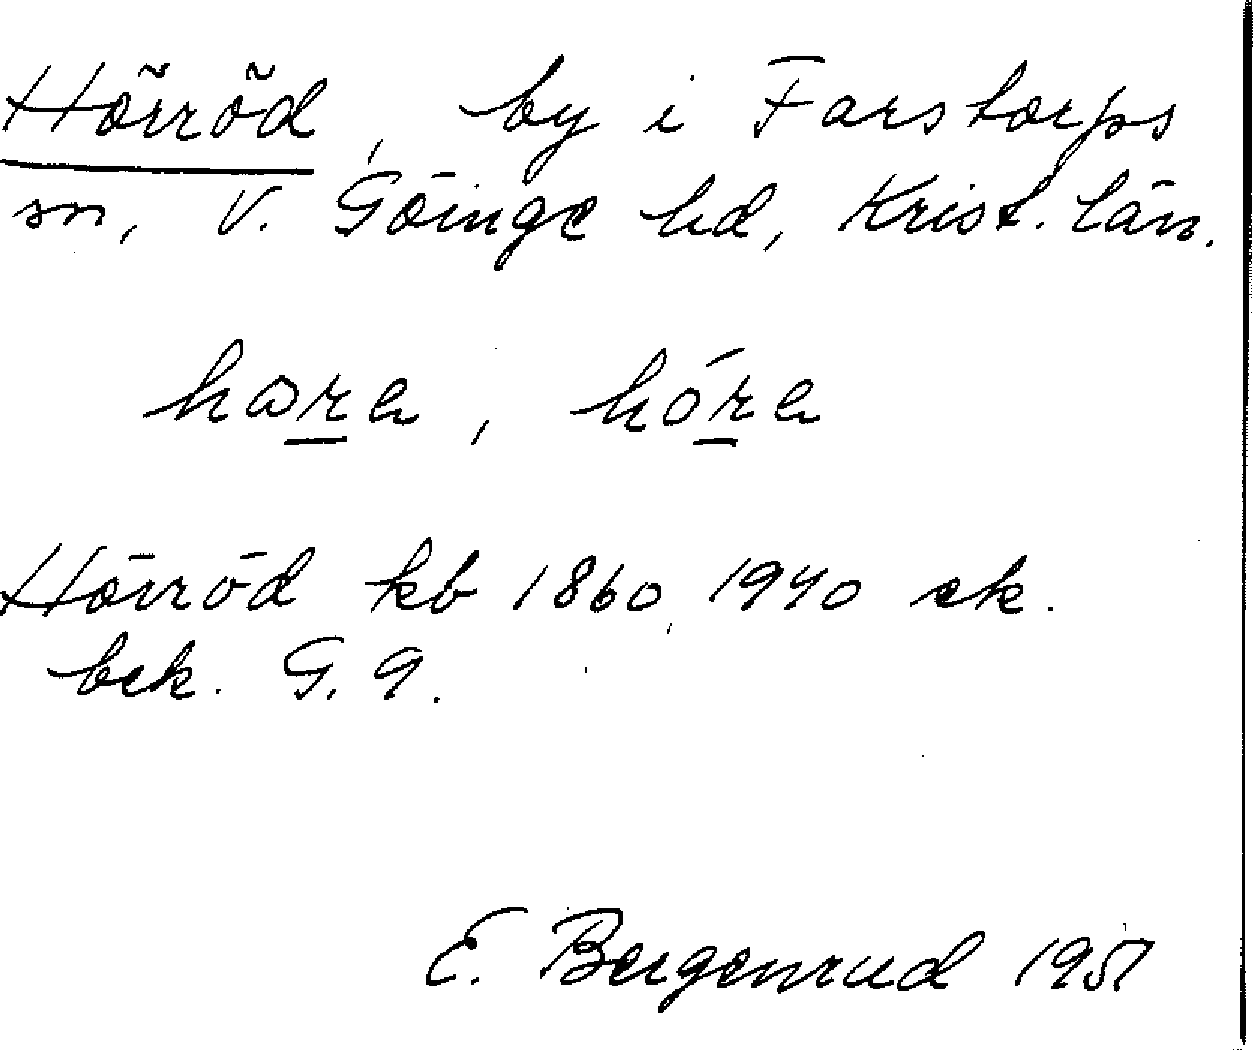 Hörröd, by i Farstorps
sn, V. Göinge hd, Krist. län.
hara, hóra
Hörröd kb 1860, 1940 ek.
bek. G. 9.
E. Bergenrud 1951